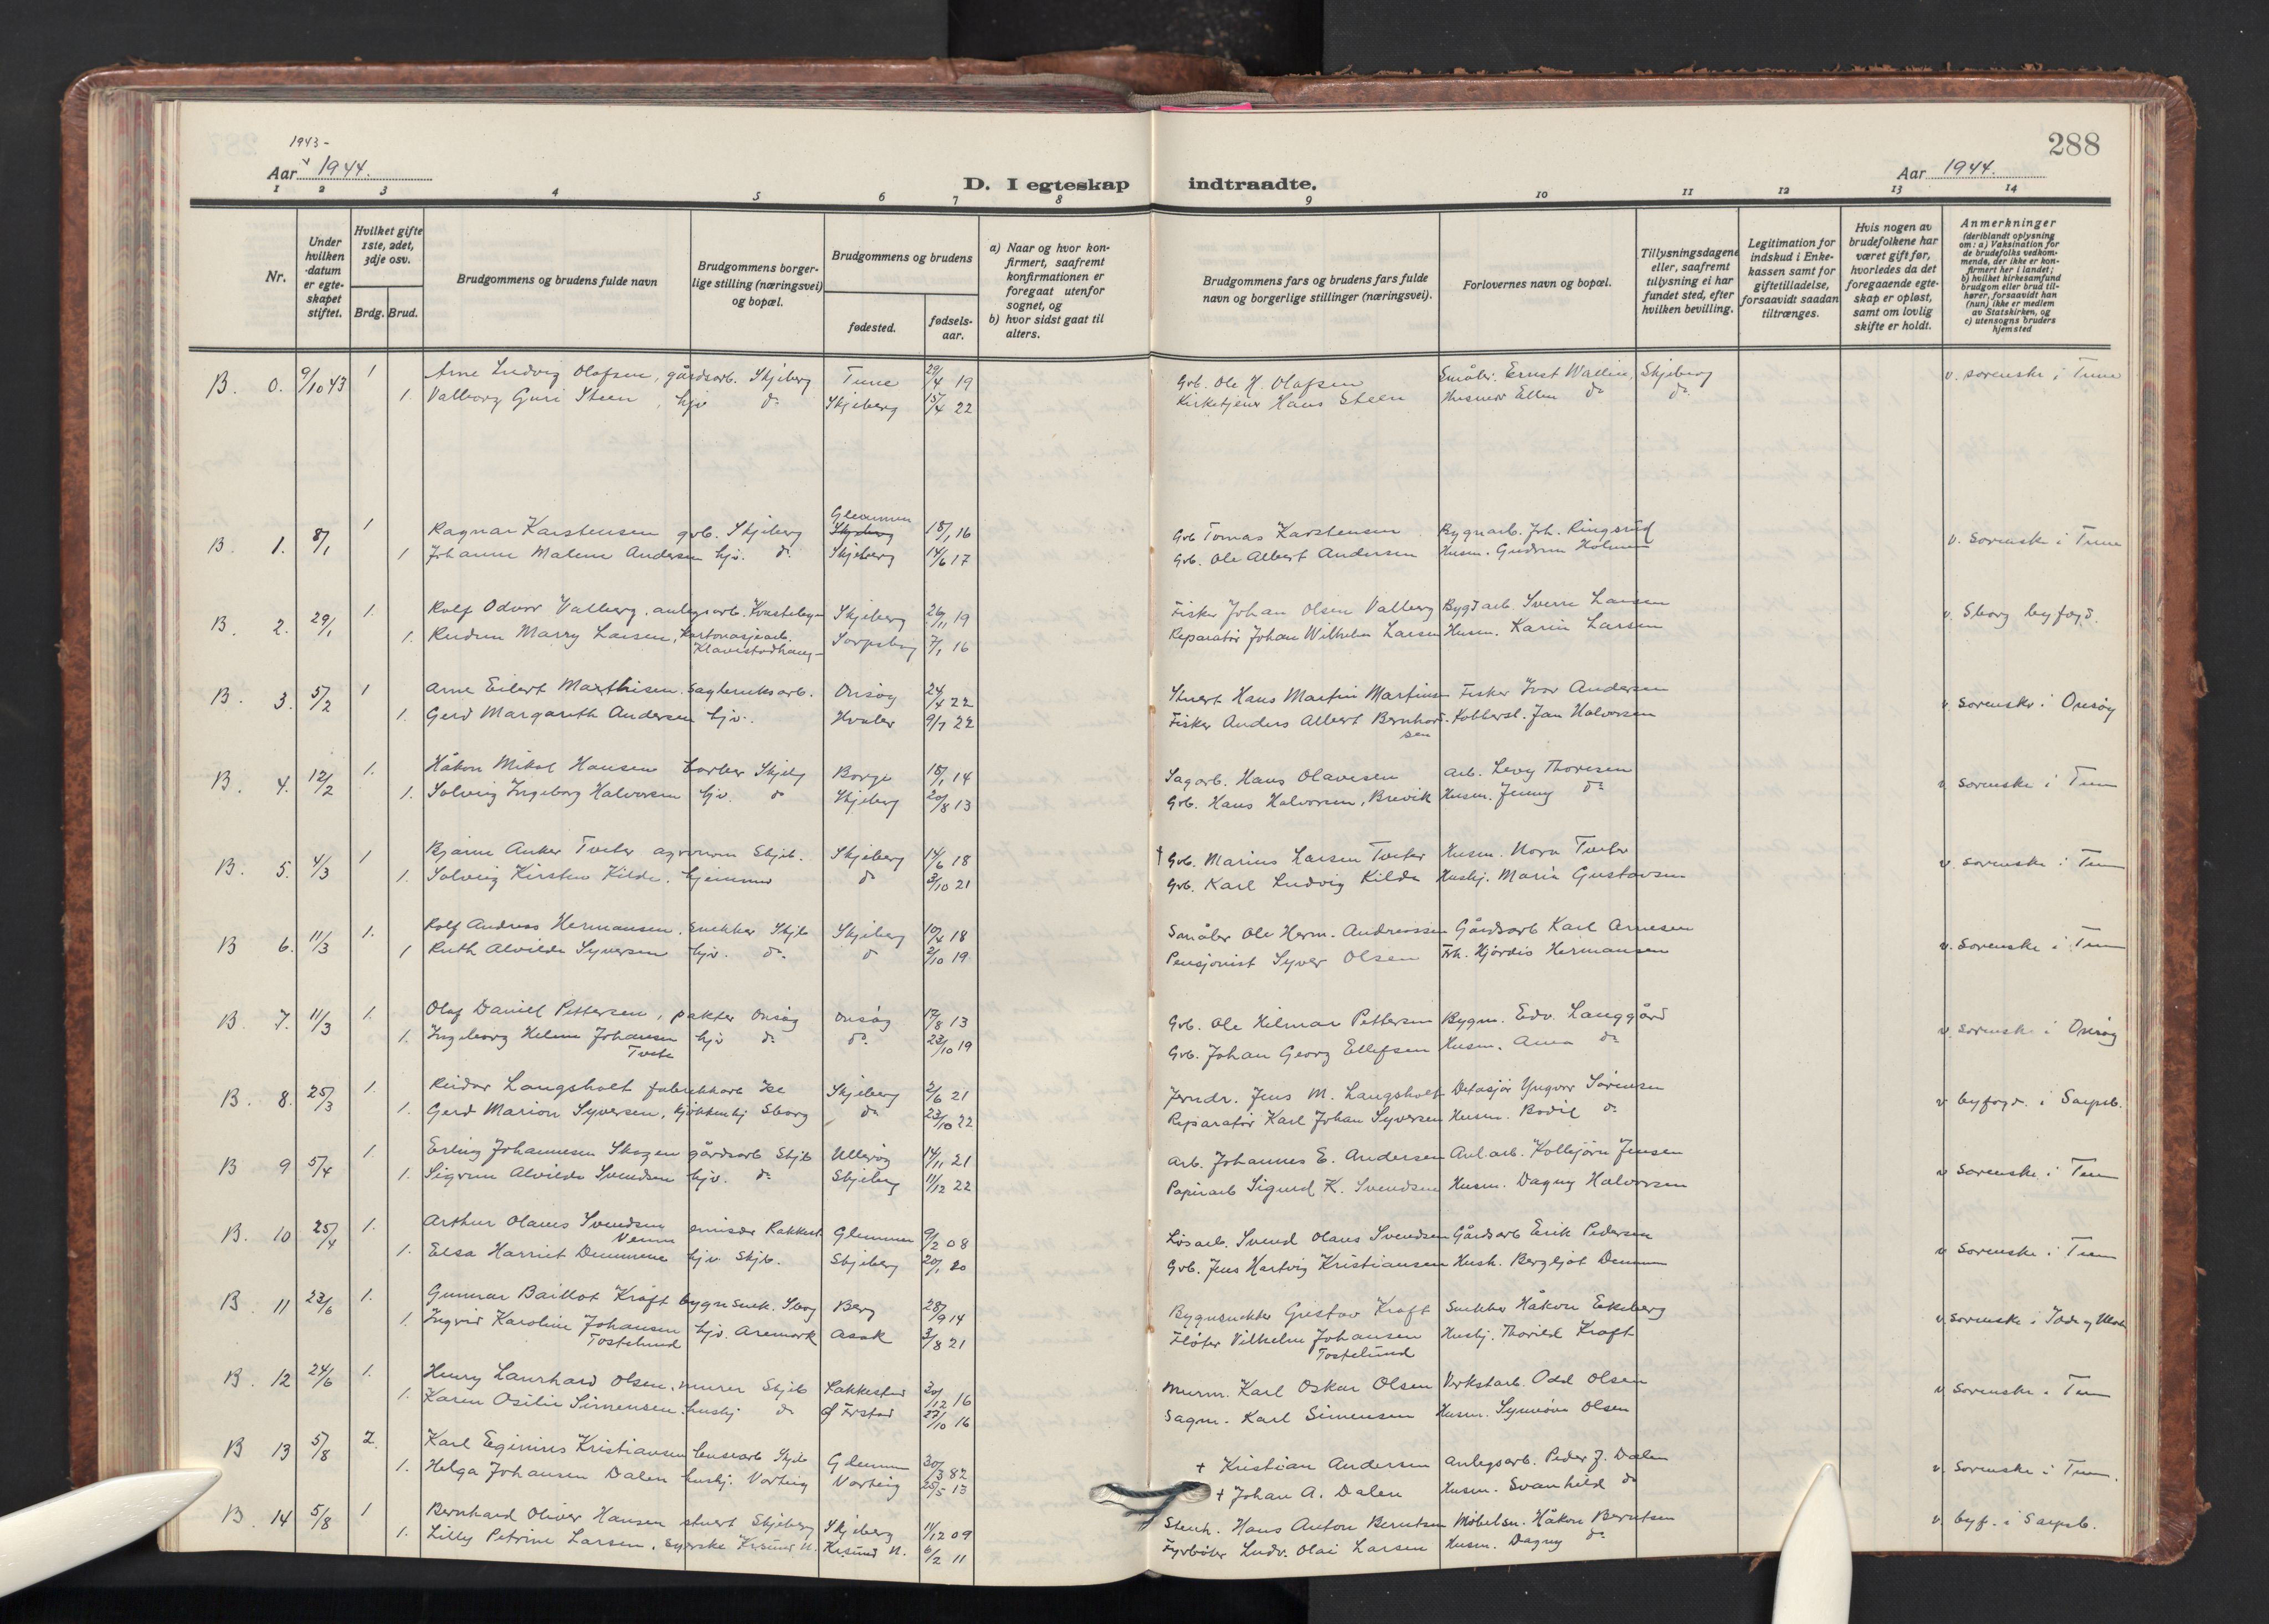 1943-
Aar 1944.
288
Aar 1944.
D. I egteskap indtraadte.
1 2 3 4 5 6 7 8 9 10 11 12 13 14
Nr.
Under hvilken datum er egteskapet stiftet.
Hvilket gifte 1ste, 2det, 3dje osv.
Brdg. Brud.
Brudgommens og brudens fulde navn
Brudgommens borgerlige stilling (næringsvei) og bopæl.
Brudgommens og brudens
fødested.
fødselsaar.
a) Naar og hvor konfirmert, saafremt konfirmationen er foregaat utenfor sognet, og
b) hvor sidst gaat til alters.
Brudgommens fars og brudens fars fulde navn og borgerlige stillinger (næringsvei).
Forlovernes navn og bopæl.
Tillysningsdagene eller, saafremt tillysning ei har fundet sted, efter hvilken bevilling.
Legitimation for indskud i Enkekassen samt for giftetilladelse, forsaavidt saadan tiltrænges.
Hvis nogen av brudefolkene har været gift før, hvorledes da det foregaaende egteskap er opløst, samt om lovlig skifte er holdt.
Anmerkninger (deriblandt oplysning om: a) Vaksination for de brudefolks vedkommende, der ikke er konfirmert her i landet; b) hvilket kirkesamfund brudgom eller brud tilhører, forsaavidt han (hun) ikke er medlem av Statskirken, og c) utensogns bruders hjemsted
B. 0. 9/10 43 1 Arne Ludvig Olafsen, gårdsarb. Skjeberg Tune 29/4 19 Gvb. Ole H. Olafsen Småbr. Ernst Wallin, Skjeberg v. sorenskr. i Tune
1. Valborg Guri Steen, hjv do Skjeberg 15/4 22 Kirketjener Hans Steen Husmor Ellen do do
B. 1. 8/1 1 Ragnar Karstensen gvb. Skjeberg Glemmen Skjeberg 18/1 16 Gvb Tomas Karstensen Bygnarb. Joh. Ringsrud v. Sorenskr i Tune
1 Johanne Malene Andersen hjv. do Skjeberg 14/6 17 Gvb. Ole Albert Andersen Husm. Gudrun Holmen
B. 2. 29/1 1. Rolf Oduar Valberg, anlegsarb. Skjeberg 26/11 19 Fisker Johan Olsen Valberg Bygdarb. Sverre Larsen v. Sborg byfogd.
1. Reidun Marry Larsen, kartonasjearb. Sarpsborg 7/1 16 Reparatør Johan Wilhelm Larsen Husm. Karin Larsen
B. 3. 5/2 1 Arne Eilert Marthisen. Sagbruksarb. Onsøy 24/4 22 Stuert Hans Martin Martinsen Fisker Ivar Andersen v. Sorenskr. i Onsøy
1. Gerd Margareth Andersen hjv. Hvaler 9/7 22 Fisker Anders Albert Bernhardsen Kobbersl. Jan Halvorsen
B. 4. 12/2 1. Håkon Mikal Hansen barber Skjebg Borge 18/1 14 Sagarb. Hans Olavesen Arb. Levy Thoresen v. Sorenskr i Tune
1. Solveig Ingeborg Halvorsen hjv. do Skjeberg 20/8 13 Gvb. Hans Halvorsen, Brevik Husm. Jenny do
B. 5. 4/3 1 Bjarne Anker Tveter agronom Skjeb. Skjeberg 14/6 18 † Gvb. Marius Larsen Tveter Husm. Nora Tveter v. sorenskr i Tune
1. Solveig Kirsten Kilde. hjemme do 3/10 21 Gvb. Karl Ludvig Kilde Hushj. Maria Gustavsen
B 6. 11/3 1. Rolf Andreas Hermansen. Snekker Skjb Skjeberg 10/4 18 Småbr Ole Herm. Andreassen Gårdsarb Karl Arnesen v. Sorenskr i Tune
1 Ruth Alvilde Syversen hjv. do do 2/10 19 Pensjonist Syver Olsen Frk. Hjørdis Hermansen
B 7. 11/3 1. Olaf Daniel Pettersen, pakter Onsøy Onsøy 12/8 13 Gvb. Ole Hilmar Pettersen Bygm. Edv. Langgård v. sorenskr i Onsøy
1. Ingeborg Helene Johansen hjv do do 23/10 19 Gvb. Johan Georg Ellefsen Husm. Anna do
B. 8. 25/3 1. Reidar Langsholt fabrikkarb Ise Skjeberg 2/6 21 Jerndr. Jens M. Langsholt Yngvar Sørensen v byfogd. i Sarpsb.
1. Gerd Marion Syversen, kjøkkenhj Sborg do 23/10 22 Reparatør Karl Johan Syversen Husm. Bodil do
B 9 5/4 1 Erling Johannesen Skogen gårdsarb Skjb Ullerøy 14/11 21 Arb. Johannes E. Andersen Anl.arb. Kolbjørn Jensen v Sorenskr. i Tune
1. Sigrun Alvilde Svendsen hjv. do Skjeberg 11/12 22 Papirarb Sigurd K. Svendsen Husm. Dagny Halvorsen
B. 10 25/4 1. Arthur Olaves Svendsen emisær Rakkest. Glemmen 9/2 08 Løsarb. Svend Olaus Svendsen Gårdsarb Erik Pedersen v Sorenskr. i Tune
1. Elsa Harriet hjv. Skjb. Skjeberg 20/1 20 Gvb. Jens Hartvig Kristiansen Hush. Bergljot
B. 11 23/6 1. Gunnar Baillot Kraft bygnsnek. Sborg Berg 28/9 14 Bygnsnekker Gustav Kraft Snekker Håkon Ekeberg
1 Ingrid Karoline Johansen Tostelund hjv. Aremark Asak 3/8 21 Fløter Vilhelm Johansen Tostelund Hushj. Thorild Kraft
B. 12 24/6 1. Henry Laurhard Olsen. murer Skjeb Rakkestad 30/12 16 Murm. Karl Oskar Olsen Verkstarb. Odd Olsen v Sorenskr. i Tune
1. Karen Osilie Simensen hushj do 27/10 16 Sagm. Karl Simensen Husm. Synnøve Olsen
B 13 5/8 2. Karl Eginius Kristiansen Skjb Glemmen 30/3 82 + Kristian Andersen Anlegsarb. Peder J. Dalen v. Sorenskr i Tune.
1. Helga Johansen Dalen hushj. Varteig Varteig 25/5 13 + Johan A. Dalen Husm. Svanhild do
B. 14 5/8 1 Bernhard Oliver Hansen stuert Skjeberg Skjeberg 11/12 09 Stenh. Hans Anton Berntsen Møbelsn. Håkon Berntsen v. byf. i Sarpsb.
1. Lilly Petrine Larsen. syerske Krsund N. Krsund N. 6/2 11 Fyrbøter Ludv. Olai Larsen Husm. Dagny do